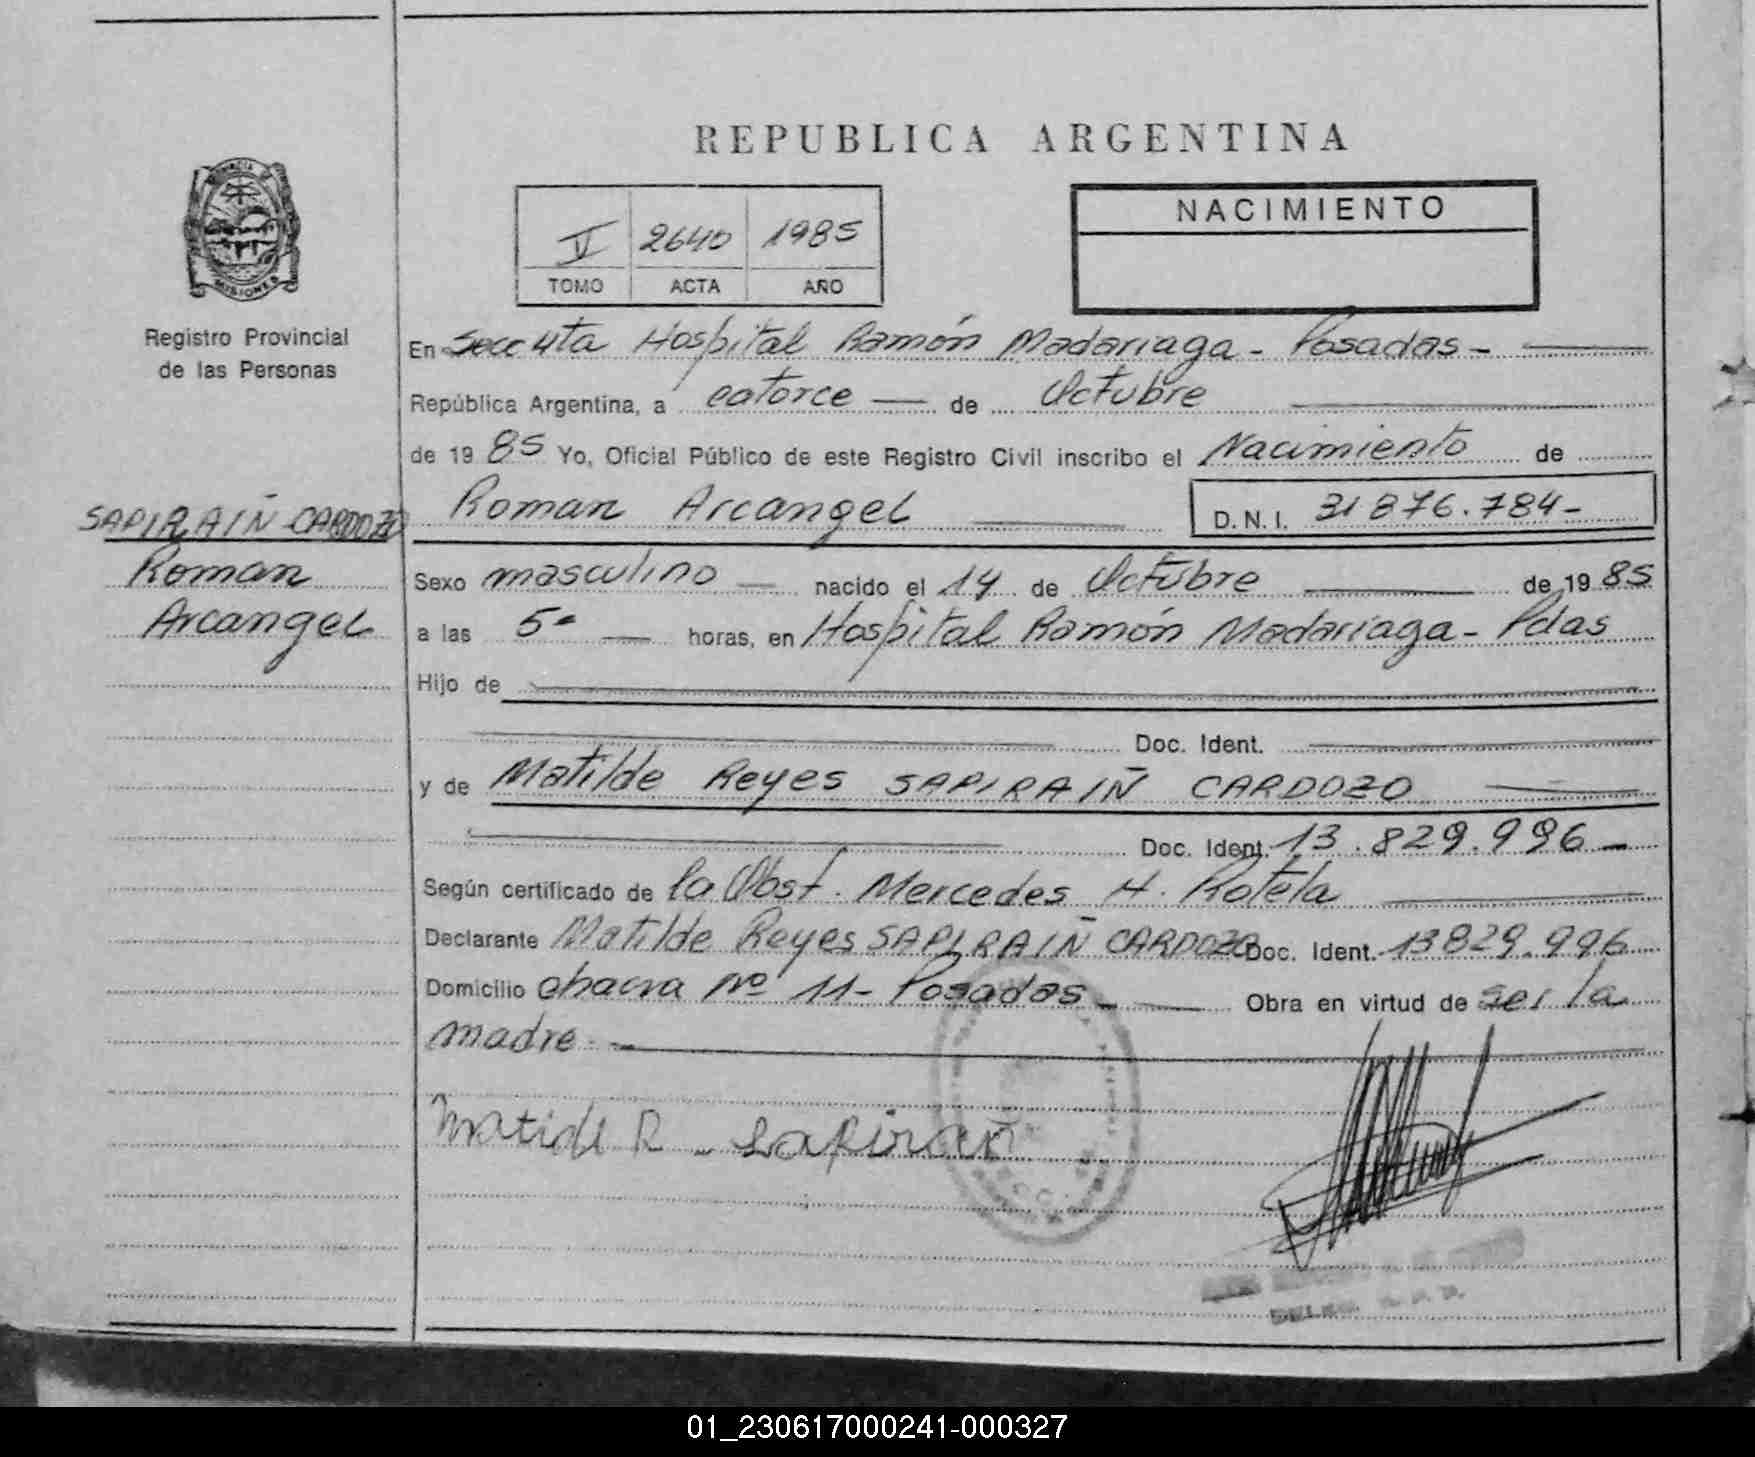 REPUBLICA ARGENTINA
PROVINCIA DE
MISIONES
Registro Provincial
de las Personas
V 2640 1985
TOMO ACTA AÑO
NACIMIENTO
En Secc 4ta Hospital Ramón Madariaga - Posadas -
República Argentina, a catorce de Octubre
de 1985 Yo, Oficial Público de este Registro Civil inscribo el Nacimiento de
SAPIRAIÑ CARDOZO
Roman
Arcangel
Roman Arcangel D.N.I. 31876.784-
Sexo masculino nacido el 14 de Octubre de 1985
a las 5- horas, en Hospital Ramón Madariaga - Pdas
Hijo de
Doc. Ident.
y de Matilde Reyes SAPIRAIÑ CARDOZO
Doc. Ident. 13.829.996-
Según certificado de la Obst. Mercedes H. Rotela
Declarante Matilde Reyes SAPIRAIÑ CARDOZO Doc. Ident. 13829.996
Domicilio chacra Nº 11- Posadas - Obra en virtud de ser la
madre.
Matide R - Sapirain
01_230617000241-000327